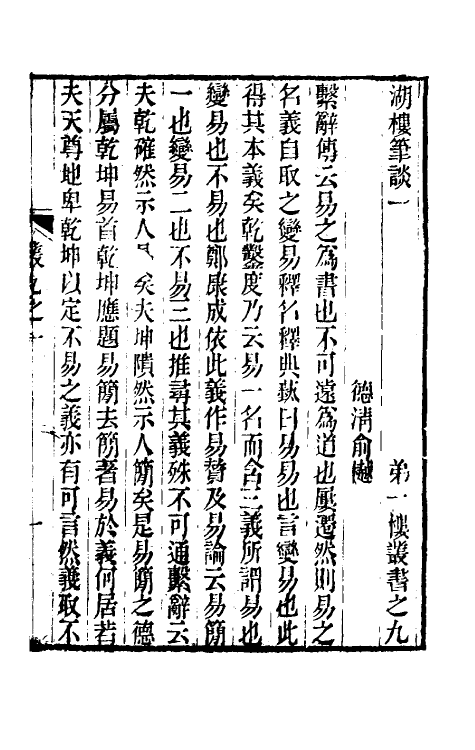 湖樓筆談一　　　　　　第一樓叢書之九
德清俞樾
繫辭傳云易之為書也不可遠為道也屢遷然則易之
名義自取之變易釋名釋典蓺曰易易也言變易也此
得其本義矣乾鑿度乃云易一名而含三義所謂易也
變易也不易也鄭康成依此義作易贊及易論云易簡
一也變易二也不易三也推尋其義殊不可通繫辭云
夫乾確然示人易矣夫坤隤然示人簡矣是易簡之德
分屬乾坤易首乾坤應題易簡去簡著易於義何居若
夫天尊地卑乾坤以定不易之義亦有可言然義取不
叢九之一
一